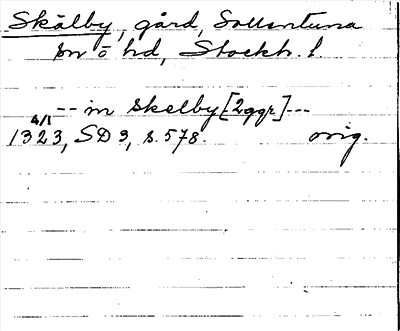 Skälby, gård, Sollentuna
sn o hd, Stockh. l.
-- in skelby [2 ggr] ---
4/1
1323, SD 3, s. 578. orig.